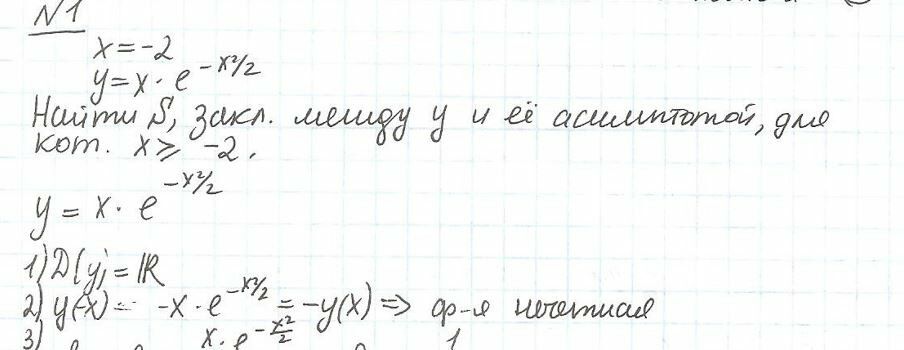 №1
x = -2
y = x · e^{-x²/2}
Найти S, закл. между y и её асимптотой, для
кот. x ⩾ -2.
y = x · e^{-x²/2}
1) D(y) = ℝ
2) y(-x) = -x · e^{-x²/2} = -y(x) => ф-я нечетная
3)
x · e^{-x²/2}
1